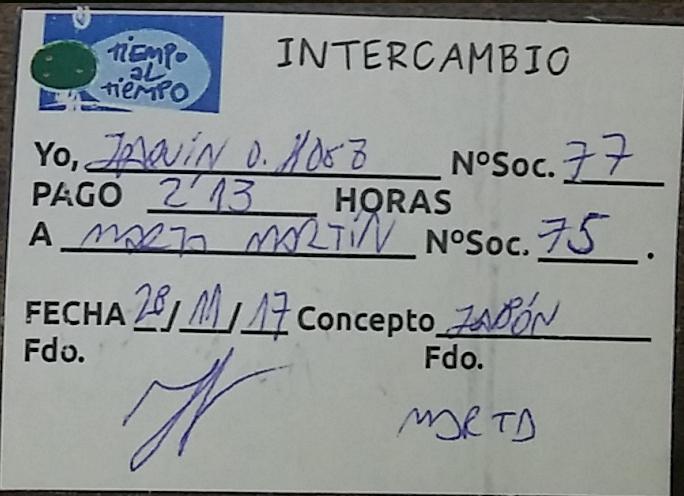 tiEMPO
AL
tiEMPO
INTERCAMBIO
Yo, NºSoc. 77
PAGO 2'13 HORAS
A MARTA MARTÍN NºSoc. 75.
FECHA 28/11/17 Concepto JABÓN
Fdo. Fdo.
MARTA